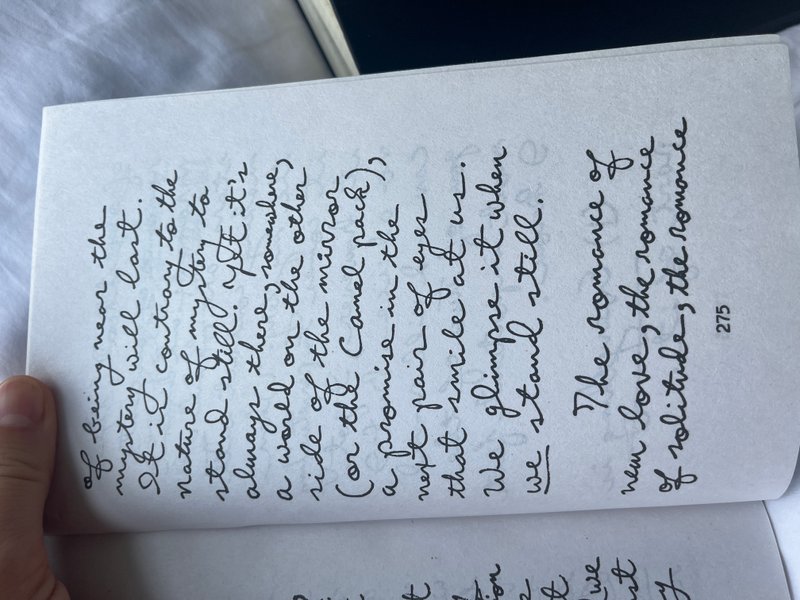 of being near the
mystery will last.
It is contrary to the
nature of mystery to
stand still. Yet it's
always there, somewhere,
a world on the other
side of the mirror
(or the Camel pack),
a promise in the
next pair of eyes
that smile at us.
We glimpse it when
we stand still.
The romance of
new love, the romance
of solitude, the romance
275
we
st
y